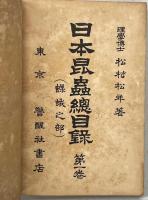 理學博士 松村松年著
日本昆蟲總目錄 第一卷
(蝶蛾之部)
東京 警醒社書店